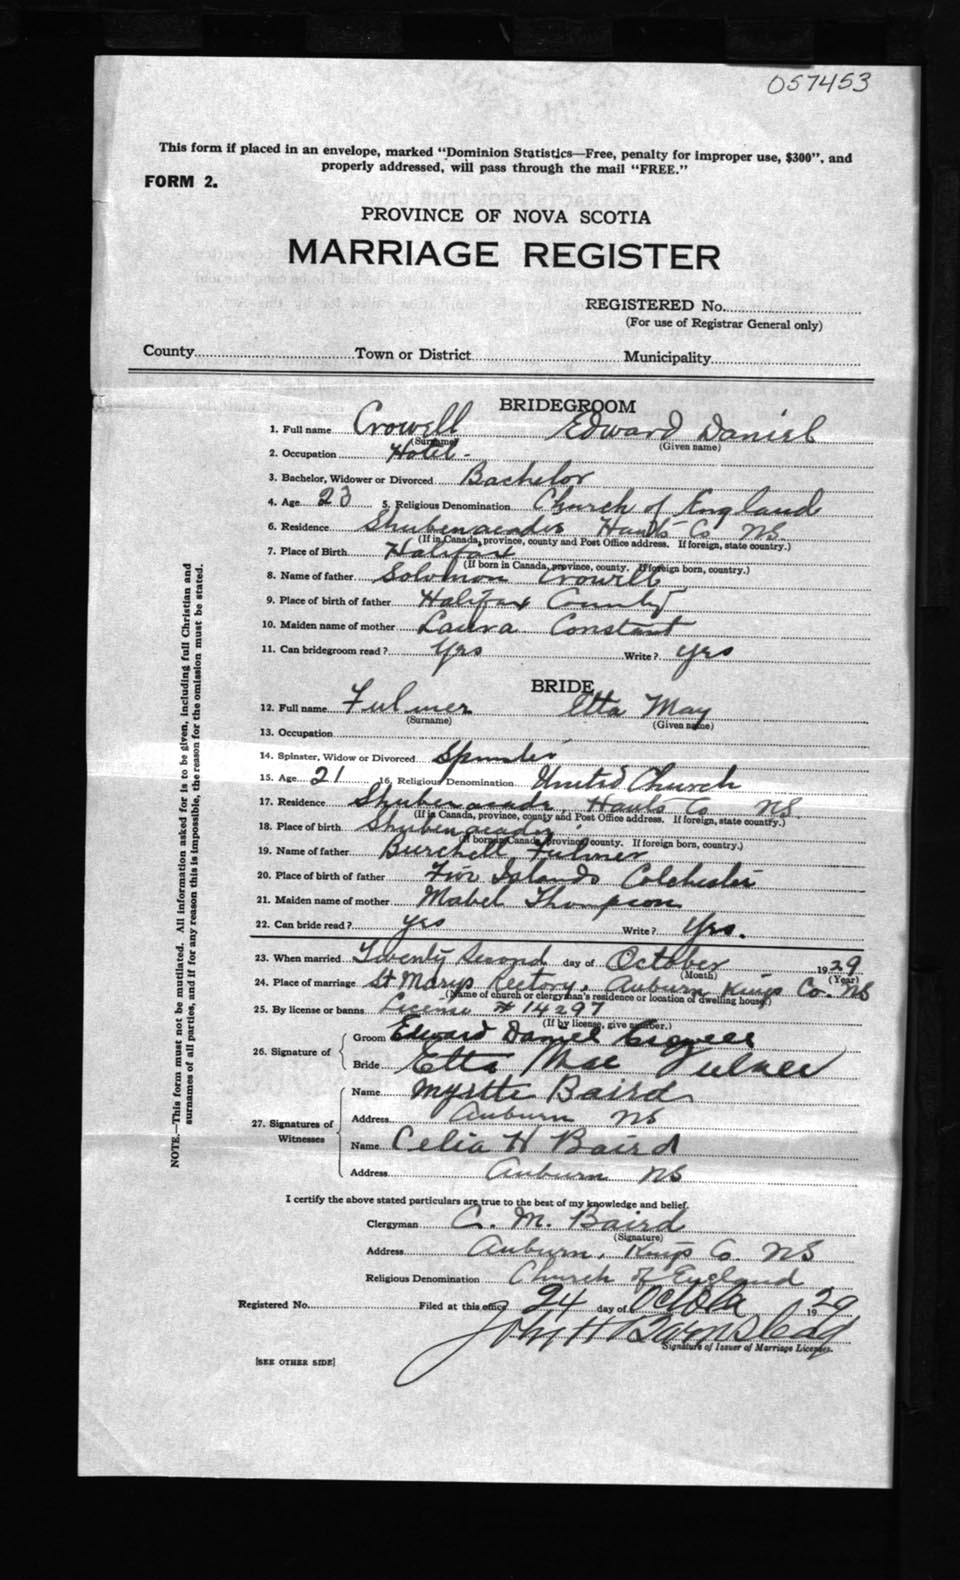 057453
This form if placed in an envelope, marked "Dominion Statistics—Free, penalty for improper use, $300", and
properly addressed, will pass through the mail "FREE."
FORM 2.
PROVINCE OF NOVA SCOTIA
MARRIAGE REGISTER
REGISTERED No.
(For use of Registrar General only)
County Town or District Municipality
BRIDEGROOM
1. Full name Crowell Edward Daniel
(Surname) (Given name)
2. Occupation Hotel -
3. Bachelor, Widower or Divorced Bachelor
4. Age 23 5. Religious Denomination Church of England
6. Residence Shubenacadie Hants Co NS.
(If in Canada, province, county and Post Office address. If foreign, state country.)
7. Place of Birth Halifax
(If born in Canada, province, county. If foreign born, country.)
8. Name of father Solomon Crowell
9. Place of birth of father Halifax County
10. Maiden name of mother Laura Constant
11. Can bridegroom read? Yes Write? Yes
BRIDE
12. Full name Fulmer Etta May
(Surname) (Given name)
13. Occupation
14. Spinster, Widow or Divorced Spinster
15. Age 21 16. Religious Denomination United Church
17. Residence Shubenacadie, Hants Co NS.
(If in Canada, province, county and Post Office address. If foreign, state country.)
18. Place of birth Shubenacadie
(If born in Canada, province, county. If foreign born, country.)
19. Name of father Burchell Fulmer
20. Place of birth of father Five Islands Colchester
21. Maiden name of mother Mabel Thompson
22. Can bride read? yes Write? Yes.
23. When married Twenty Second day of October 1929
(Month) (Year)
24. Place of marriage St Marys Rectory, Auburn Kings Co. NS
(Name of church or clergyman's residence or location of dwelling house.)
25. By license or banns License # 14297
(If by license, give number.)
26. Signature of
Groom Edward Daniel Crowell
Bride Etta Mae Fulmer
27. Signatures of Witnesses
Name Myrtle Baird
Address Auburn NS
Name Celia H Baird
Address Auburn NS
I certify the above stated particulars are true to the best of my knowledge and belief.
Clergyman C. M. Baird
(Signature)
Address Auburn, Kings Co. NS
Religious Denomination Church of England
Registered No. Filed at this office 24 day of October 1929
John H Barnstead
Signature of Issuer of Marriage Licenses.
[SEE OTHER SIDE]
NOTE.—This form must not be mutilated. All information asked for is to be given, including full Christian and
surnames of all parties, and if for any reason this is impossible, the reason for the omission must be stated.